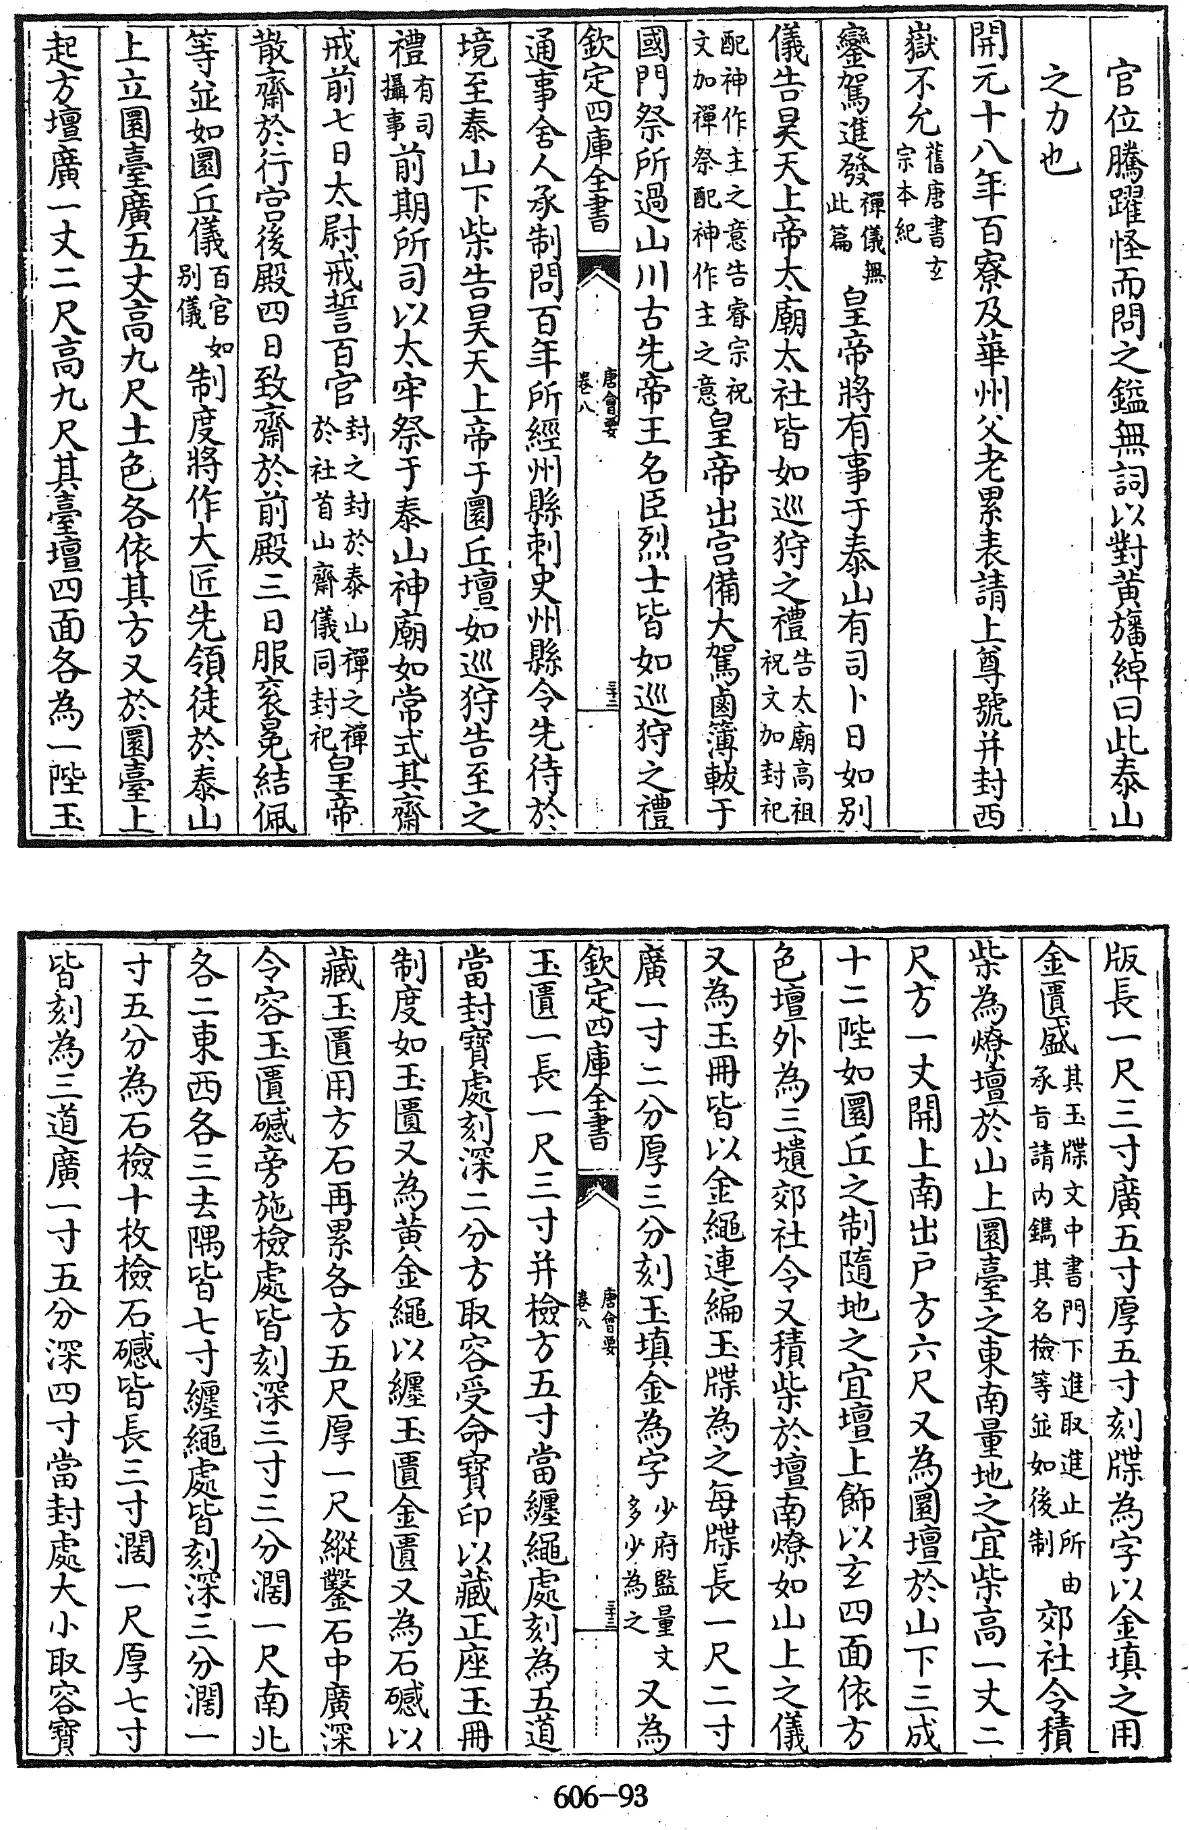 官位騰躍怪而問之鎰無詞以對黃旛綽曰此泰山
之力也
開元十八年百寮及華州父老累表請上尊號并封西
嶽不允舊唐書玄宗本紀
鑾駕進發禪儀無此篇皇帝將有事于泰山有司卜日如别
儀告昊天上帝太廟太社皆如巡狩之禮告太廟高祖祝文加封祀
配神作主之意告睿宗祝文加禪祭配神作主之意皇帝出宫備大駕鹵簿軷于
國門祭所過山川古先帝王名臣烈士皆如巡狩之禮
欽定四庫全書
唐會要
卷八
三十二
通事舍人承制問百年所經州縣刺史州縣令先待於
境至泰山下柴告昊天上帝于圜丘壇如巡狩告至之
禮有司攝事前期所司以太牢祭于泰山神廟如常式其齋
戒前七日太尉戒誓百官封之封於泰山禪之禪於社首山齋儀同封祀皇帝
散齋於行宫後殿四日致齋於前殿三日服衮冕結佩
等並如圜丘儀百官如别儀制度將作大匠先領徒於泰山
上立圜臺廣五丈高九尺土色各依其方又於圜臺上
起方壇廣一丈二尺高九尺其臺壇四面各為一陛玉
版長一尺三寸廣五寸厚五寸刻牒為字以金填之用
金匱盛其玉牒文中書門下進取進止所由承旨請内鐫其名檢等並如後制郊社令積
柴為燎壇於山上圜臺之東南量地之宜柴高一丈二
尺方一丈開上南出户方六尺又為圜壇於山下三成
十二陛如圜丘之制隨地之宜壇上飾以玄四面依方
色壇外為三壝郊社令又積柴於壇南燎如山上之儀
又為玉冊皆以金繩連編玉牒為之每牒長一尺二寸
廣一寸二分厚三分刻玉填金為字少府監量文多少為之又為
欽定四庫全書
唐會要
卷八
三十三
玉匱一長一尺三寸并檢方五寸當纏繩處刻為五道
當封寶處刻深二分方取容受命寶印以藏正座玉冊
制度如玉匱又為黃金繩以纏玉匱金匱又為石礛以
藏玉匱用方石再累各方五尺厚一尺縱鑿石中廣深
令容玉匱礛旁施檢處皆刻深三寸三分濶一尺南北
各二東西各三去隅皆七寸纏繩處皆刻深三分濶一
寸五分為石檢十枚檢石礛皆長三寸濶一尺厚七寸
皆刻為三道廣一寸五分深四寸當封處大小取容寶
606-93